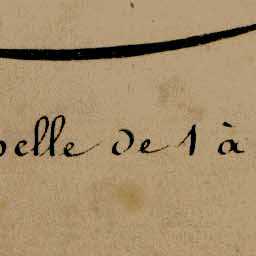 pelle de 1 à